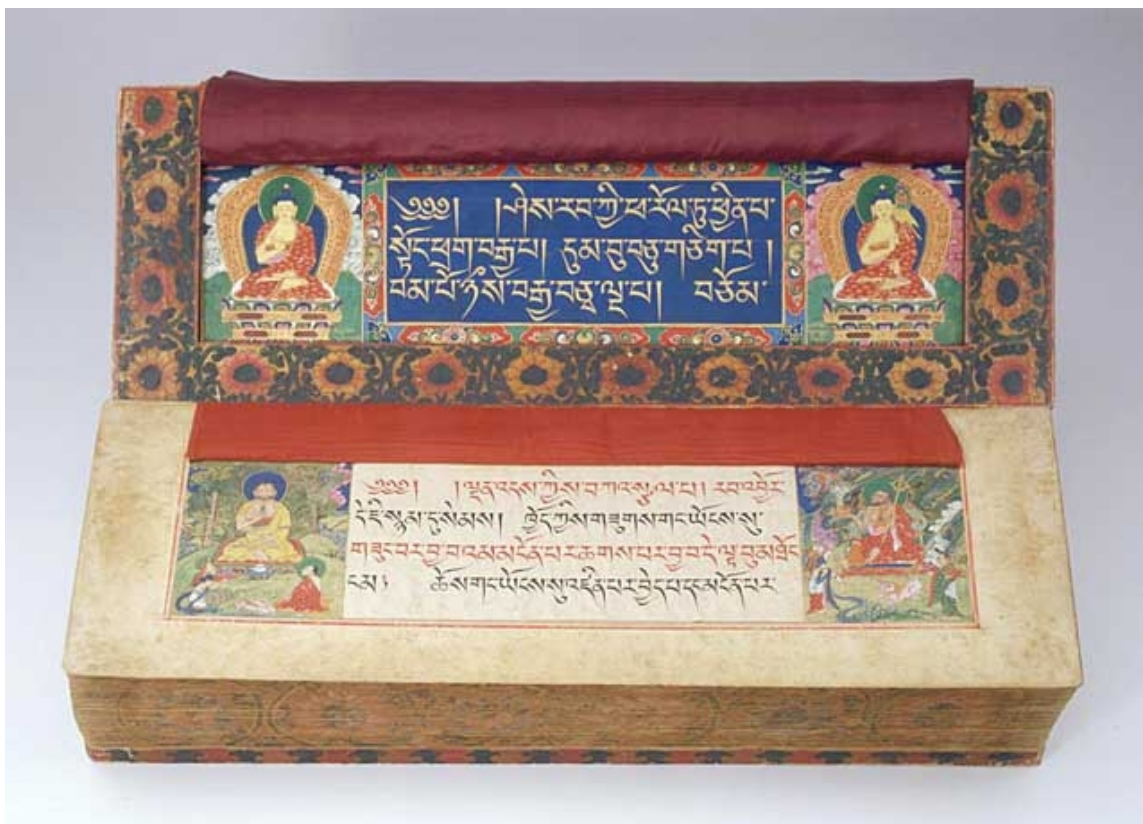 ༄༅༅། །ཤེས་རབ་ཀྱི་ཕ་རོལ་ཏུ་ཕྱིན་པ་
སྟོང་ཕྲག་བརྒྱ་པ། དུམ་བུ་བཅུ་གཅིག་པ །
བམ་པོ་ཉི་སོ་བརྒྱ་བཅྭ་ལྔ་པ། བཅོམ་
༄༅༅། །ལྡན་འདས་ཀྱིས་བཀའ་སྩལ་པ། རབ་འབྱོར་
དེ་ཇི་སྙམ་དུ་སེམས། ཁྱོད་ཀྱིས་གཟུགས་གང་ཡོངས་སུ་
གཟུང་བར་བྱ་བའམ་མངོན་པར་ཆགས་པར་བྱ་བ་དེ་ལྟ་བུ་མཐོང་
ངམ། ཆོས་གང་ཡོངས་སུ་འཛིན་པར་བྱེད་པ་དང་མངོན་པར